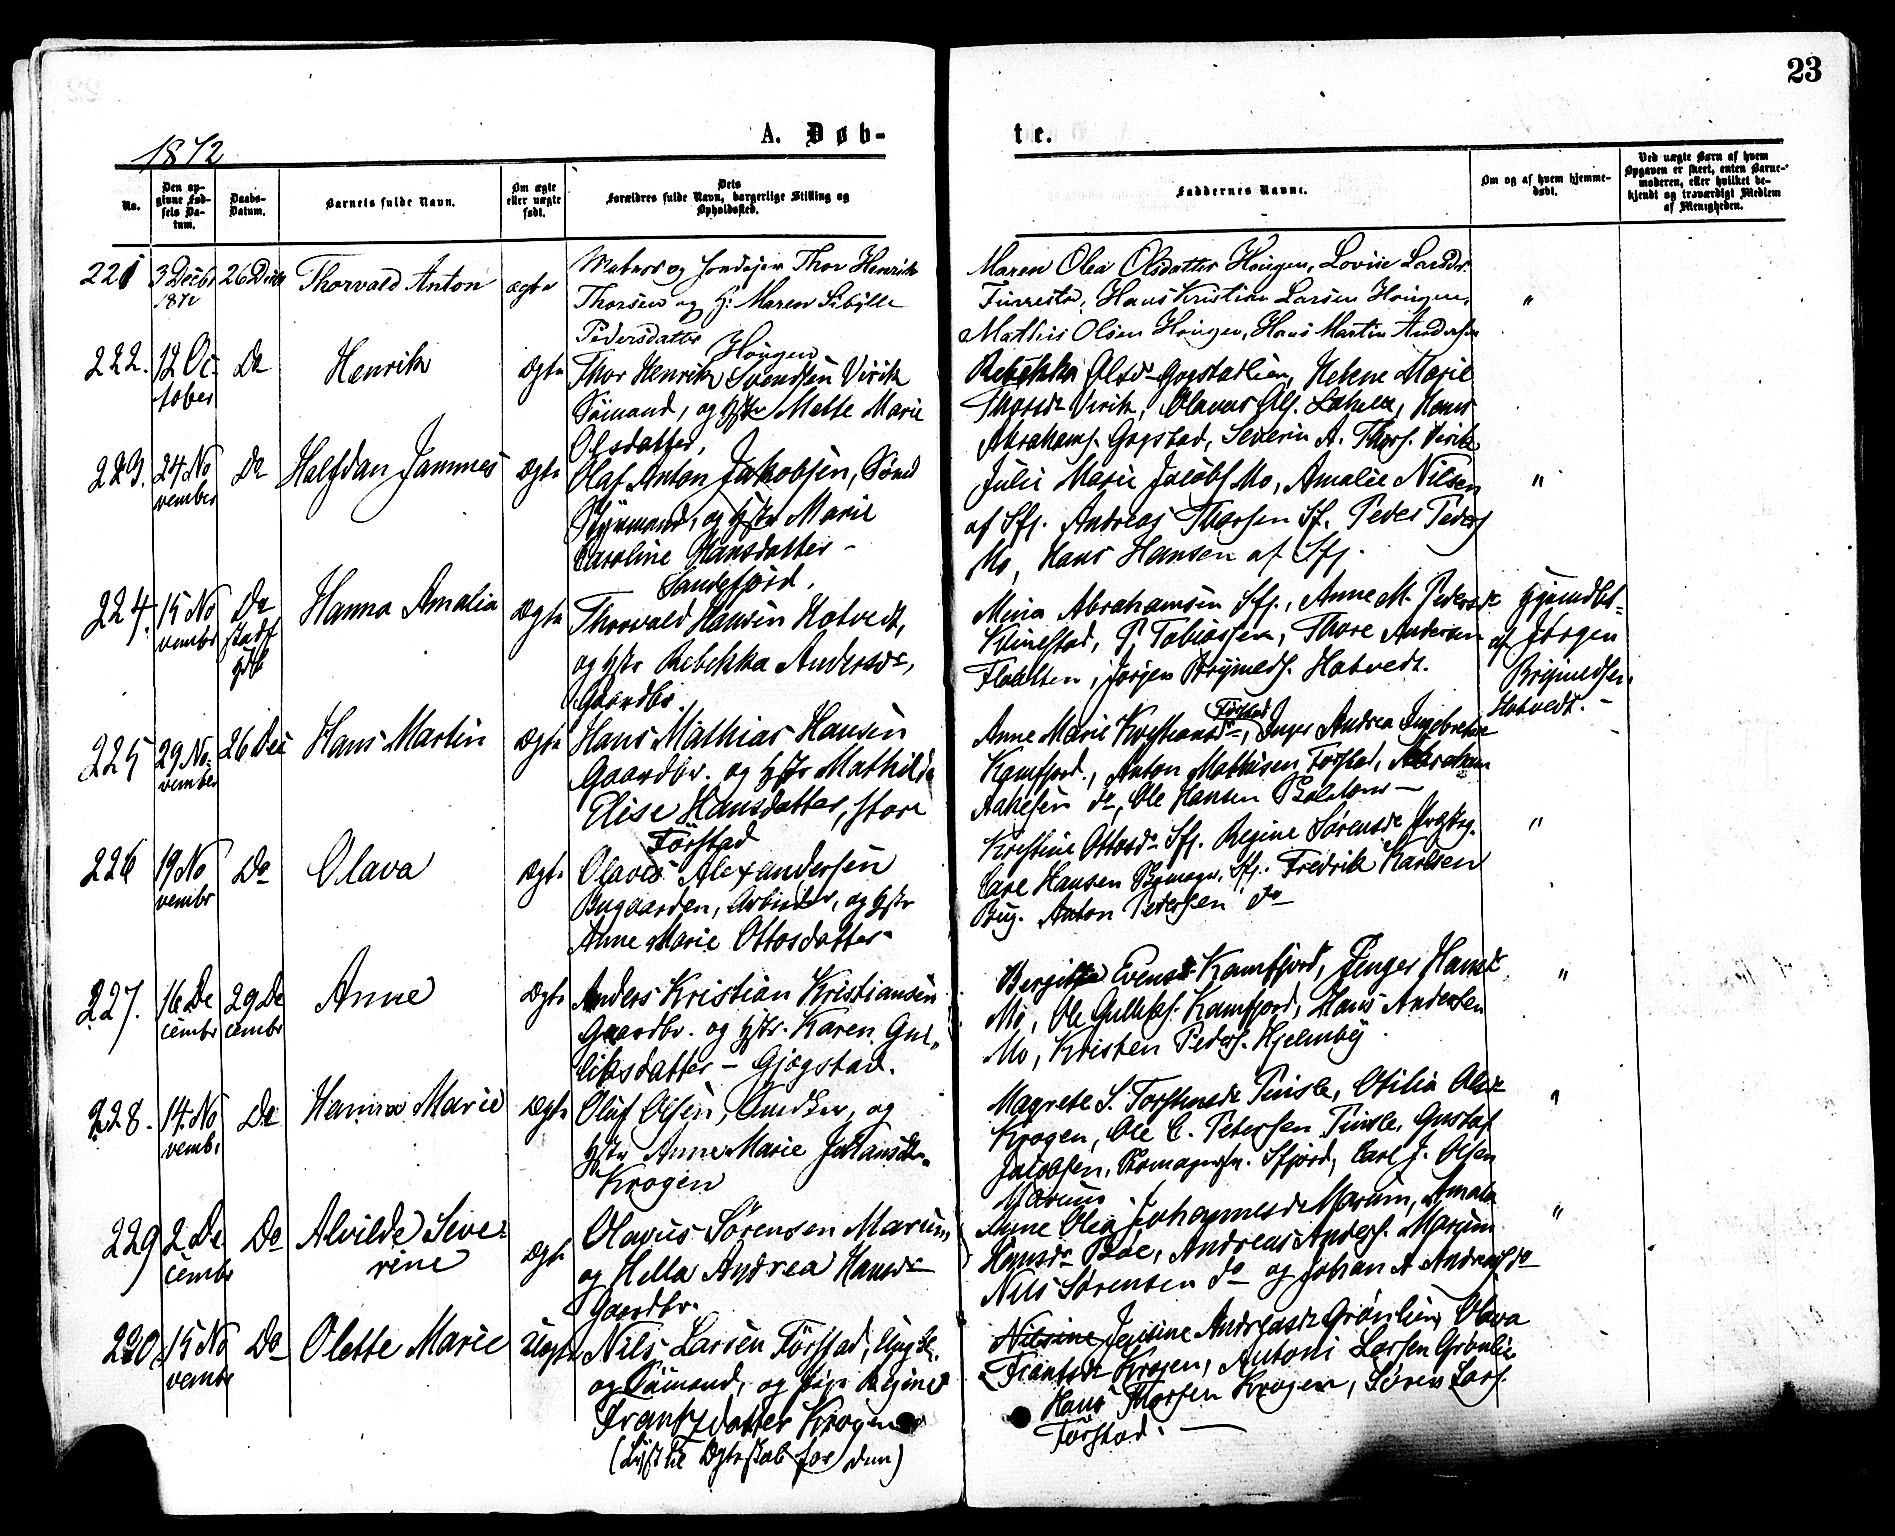 23
1872
A. Døb-
te.
No.
Den op-
givne Fød-
sels Da-
tum.
Daabs-
Datum.
Barnets fulde Navn.
Om ægte
eller uægte
født.
Dets
Forældres fulde Navn, borgerlige Stilling og
Opholdssted.
Faddernes Navne.
Om og af hvem hjemme-
døbt.
Ved uægte Børn af hvem
Opgaven er skeet, enten Barne-
moderen, eller hvilket be-
kjendt og troværdigt Medlem
af Menigheden.
221 3 Decbr 26 Decbr Thorvald Anton ægte
1872
Thor Henrik
Thorsen og H: Maren Sibylle
Pedersdatter
Hougen
Maren Olea Olsdatter Hougen, Lovise Larsdr
Furrestad, Hans Kristian Larsen Hougen, "
Mathis Olsen Hougen, Hans Martin Andersen
222. 12 Oc- Do Henrik Ægte
tober
Thor Henrik Svendsen Virik
Sømand, og Hstr Mette Marie
Olsdatter,
Rebekka Olsdr Gogstadlien, Helene Marie
Thorsdr Virik, Olavus Ols. , Hans
Abrahams. Gogstad, Severin A. Thors. Virik
223. 24 No Do Halfdan Jammes Ægte
vember
Olaf Anton Jakobsen,
Styrmand, og Hstr Marie
Caroline Hansdatter –
Sandefjord.
Julie Marie Jacobs Mo, Amalie Nilsen "
af Sfj. Andreas Thorsen Sf. Peder Peders
Mo, Hans Hansen af Sfj.
224. 15 No Do Hanna Amalia Ægte
vembr stadf
gdb
Thorvald Hansen Hotvedt,
og Hstr Rebekka Andersdr,
Gaardbr.
Mina Abrahamsen Sfj., Anne M. Pedersdr
, P. Tobiassen, Thore Andersen
Floatten, Jørgen Brynieds. Hotvedt.
Hjemdbt-
af Jørgen
Bryniedsen
Hotvedt. –
225 29 No- 26 Dec Hans Martin Ægte
vember
Hans Mathias Hansen
Gaardbr. og Hstr Mathilde
Elise Hansdatter, store
Førstad
Anne Marie Kristiansdr Førstad, Inger Andrea Ingebretsdr
Kamfjord., Anton Mathisen Førstad, Abraham
Aakesen do, Ole Hansen –
226 19 No Do Olava Ægte
vembr
Olaves Alexandersen
Bugaarden, Arbeider, og Hstr
Anne Marie Ottosdatter–
Kristine Ottosdr Sfj. Regine Sørensdr "
Carl Hansen Sfj. Fredrik Karlsen
Bug. Anton Pedersen do
227. 16 De 29 De Anne Ægte
cembr cembr
Anders Kristian Kristiansen
Gaardbr. og Hstr. Karen Gul„
liksdatter – Gjøgstad.
Bergitha Evensdr Kamfjord, Inger Hansdr "
Mo, Ole Gulliks. Kamfjord, Hans Andersen
Mo, Kristen Peders. Hjelmby
228. 14. No Do Hanna Marie Ægte
vembr
Oluf Olsen, Snedker, og
Hstr Anne Marie Johansdtr
Krogen
Magrete S. Torstensdr Pindsle, Otilia Olsdr "
Krogen, Ole C. Petersen Pindsle, Gustaf
Jacobsen, Sfjord, Carl J. Olsen
Marum
229 2 De Do Alvilde Seve-
cembr rine Ægte
Olavus Sørensen Marum,
og Hella Andrea Hansdr
Gaardbr.
Anne Olea Johannesdr Marum, Amala "
Hansdr Bøe, Andreas Anders. Marum
Nils Sørensen do og Johan A. Andreass do
230 15 No Do Olette Marie Uægte
vembr
Nils Larsen Førstad, Ungk.
og Sømand, og Pige Regine
Frantzdatter Krogen
(Lyst til Ægteskab for dem)
Nilsine Jensine Andreasdr Grønlien, Olava
Frantsdr Krogen, Antoni Larsen Grønlie
Hans Thorsen Krogen, Søren Lars.
Førstad. –